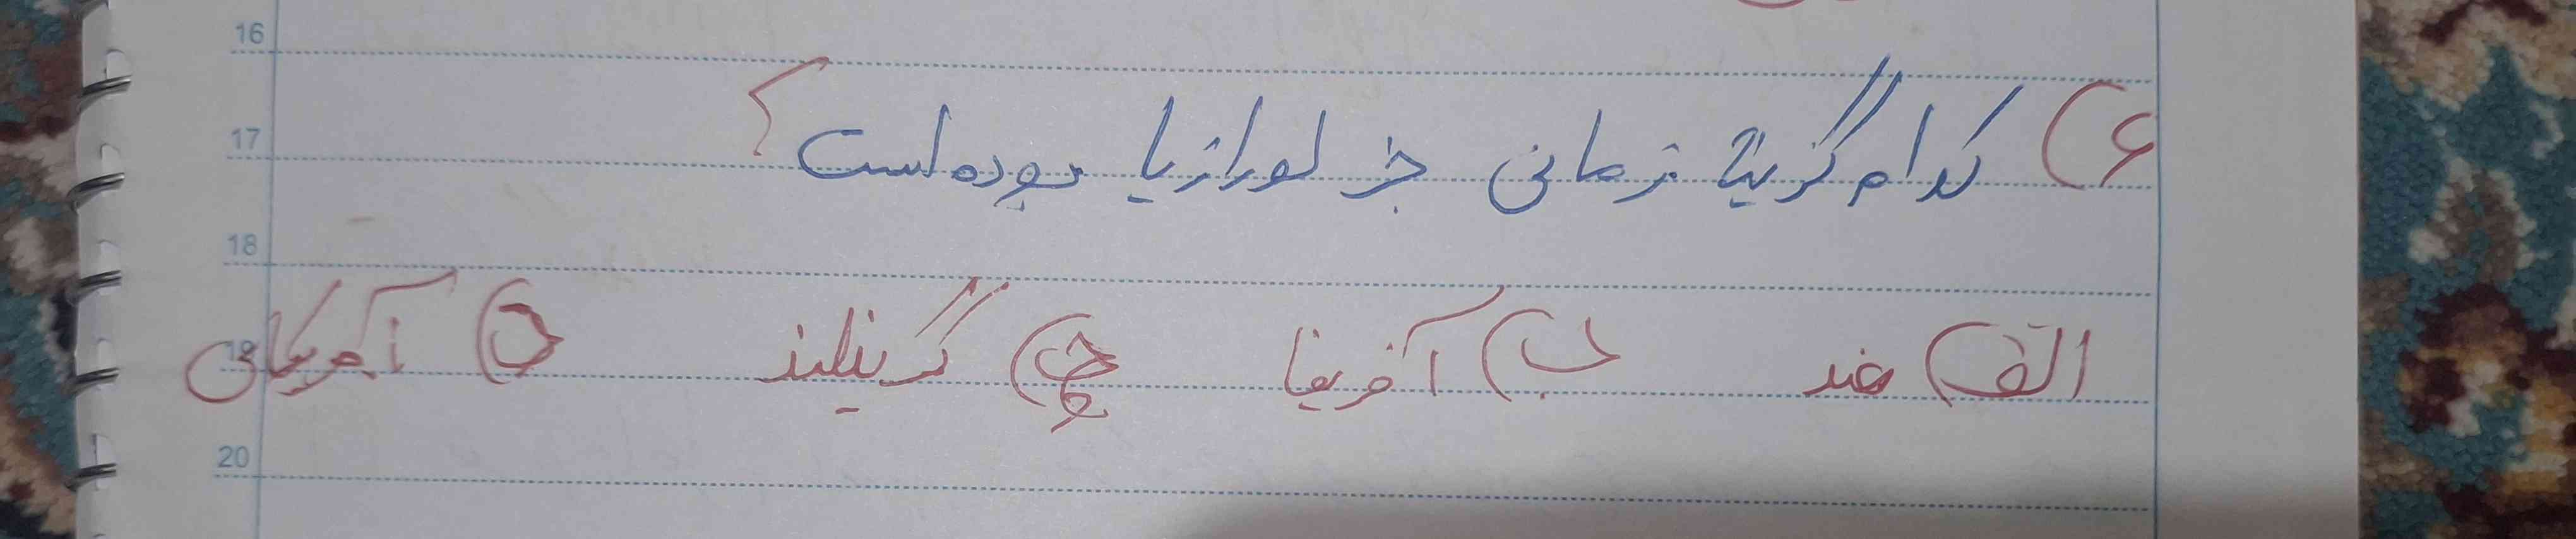 16
17
۶) کدام گزینهٔ زمانی جز لورازیا بوده است؟
18
19
الف) هند ب) آفریقا ج) گرینلند د)
20